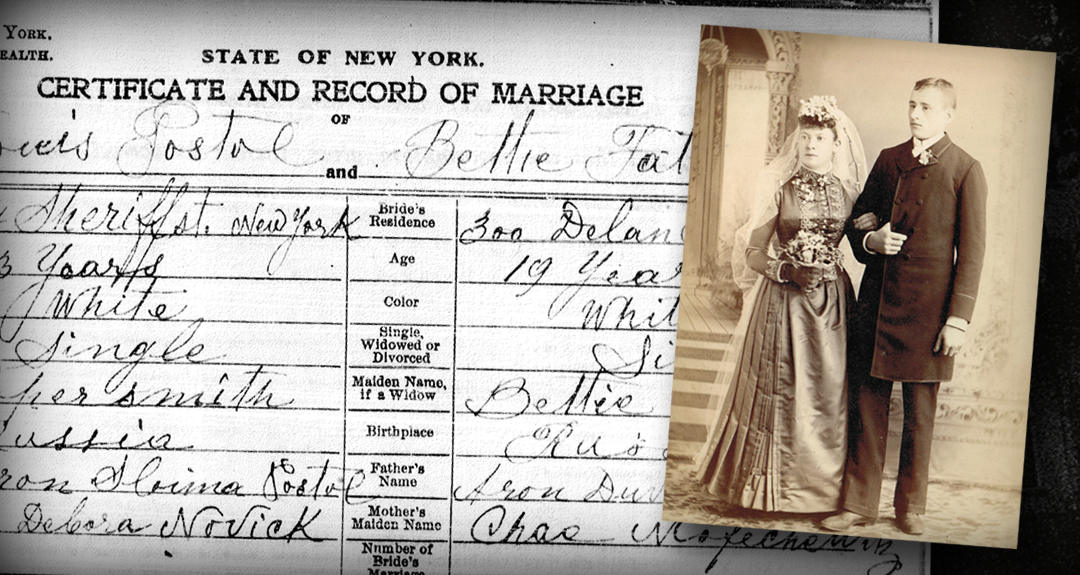 YORK.
EALTH.
STATE OF NEW YORK.
CERTIFICATE AND RECORD OF MARRIAGE
OF
Postol and Bettie Fat
Sheriff st. New York Bride's Residence 300 Delan
3 Years Age 19 Year
White Color Whit
Single Single, Widowed or Divorced Si
per smith Maiden Name, if a Widow Bettie
ussia Birthplace Rus
ron Sloima Postol Father's Name Aron
Debora Novick Mother's Maiden Name
Number of Bride's Marriage